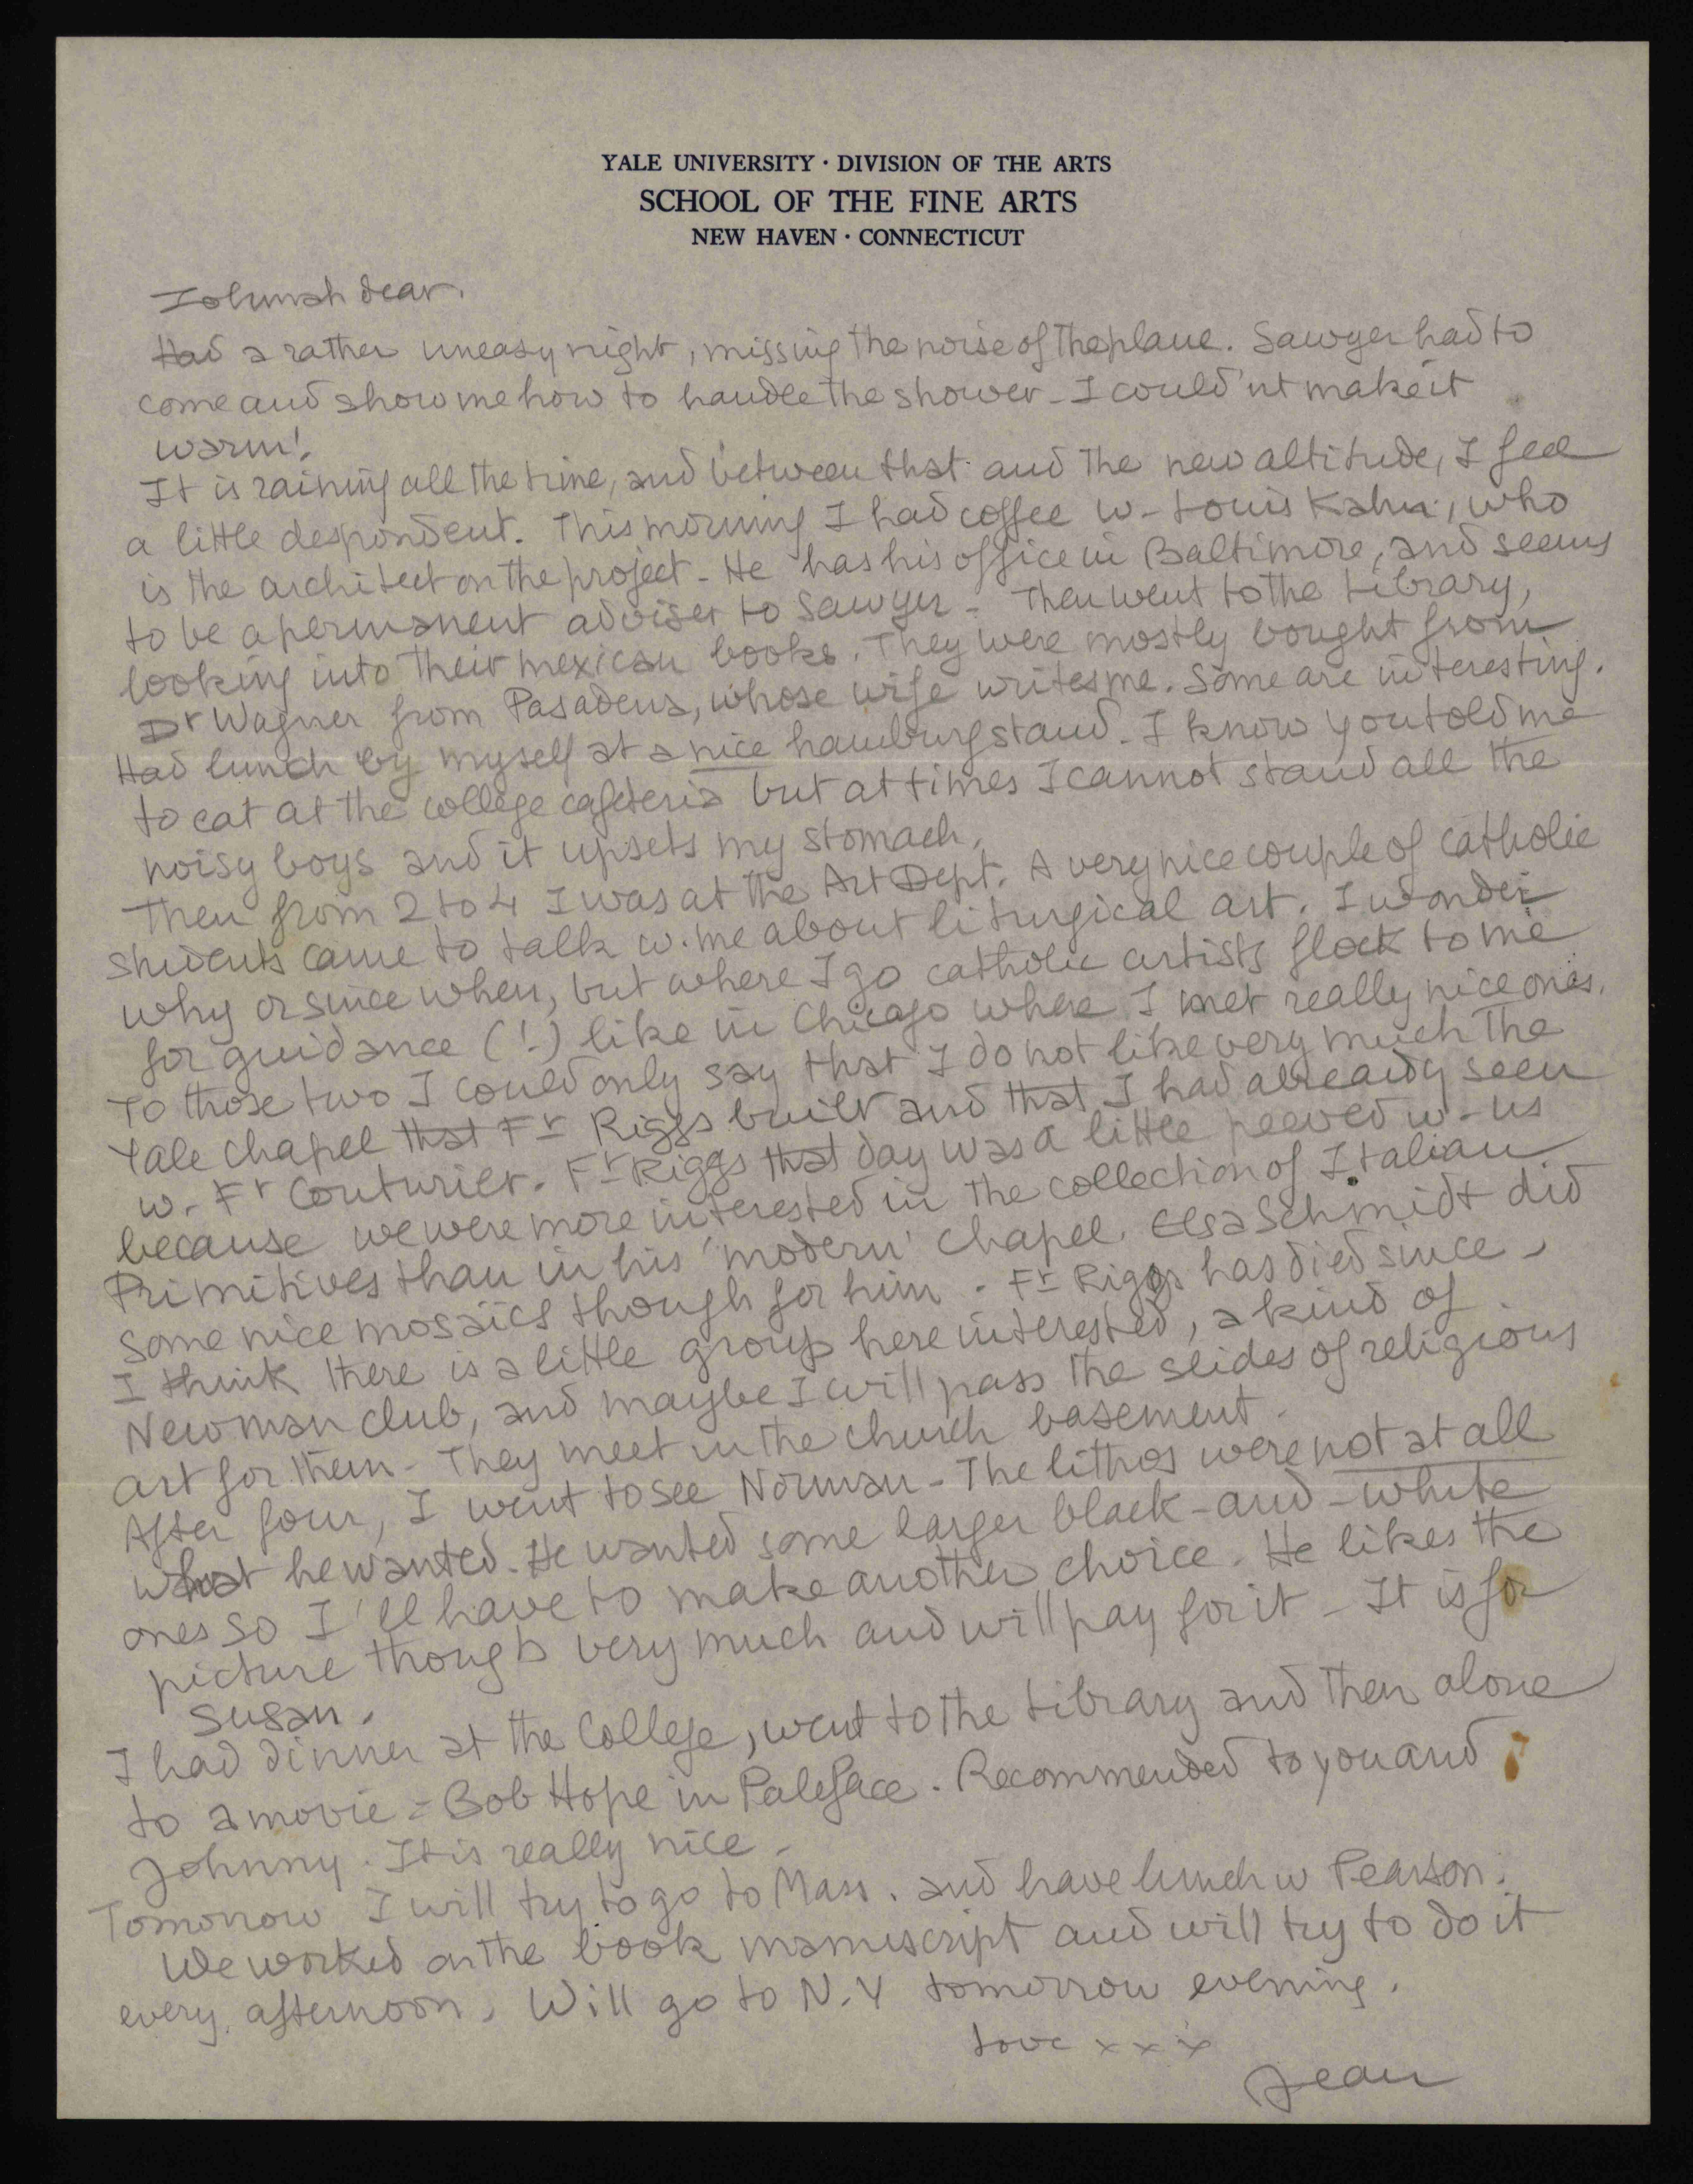 YALE UNIVERSITY · DIVISION OF THE ARTS
SCHOOL OF THE FINE ARTS
NEW HAVEN · CONNECTICUT
Zohmah dear.
Had a rather uneasy night, missing the noise of the plane. Sawyer had to
come and show me how to handle the shower - I could'nt make it
warm!
It is raining all the time, and between that and the new altitude, I feel
a little despondent. This morning I had coffee w- Louis Kahn, who
is the architect on the project - He has his office in Baltimore, and seems
to be a permanent adviser to Sawyer - Then went to the Library,
looking into their mexican books. They were mostly bought from
Dr Wagner from Pasadena, whose wife writes me. Some are interesting.
Had lunch by myself at a nice hamburg stand. I know you told me
to eat at the college cafeteria but at times I cannot stand all the
noisy boys and it upsets my stomach.
Then from 2 to 4 I was at the Art Dept. A very nice couple of catholic
students came to talk w. me about liturgical art. I wonder
why or since when, but where I go catholic artists flock to me
for guidance (!) like in Chicago where I met really nice ones.
To those two I could only say that I do not like very much the
Yale chapel that Fr Riggs built and that I had already seen
w. Fr Couturier. Fr Riggs that day was a little peeved w- us
because we were more interested in the collection of Italian
Primitives than in his 'modern' chapel. Elsa Schmidt did
some nice mosaics though for him. Fr Riggs has died since -
I think there is a little group here interested, a kind of
Newman club, and maybe I will pass the slides of religious
art for them - They meet in the church basement.
After four, I went to see Norman - The lithos were not at all
what he wanted. He wanted some larger black-and-white
ones so I'll have to make another choice. He likes the
picture though very much and will pay for it - It is for
Susan.
I had dinner at the College, went to the Library and then alone
to a movie = Bob Hope in Paleface. Recommended to you and
Johnny. It is really nice -
Tomorrow I will try to go to Mass. and have lunch w Pearson.
We worked on the book manuscript and will try to do it
every afternoon. Will go to N.Y tomorrow evening.
Love x x x
Jean